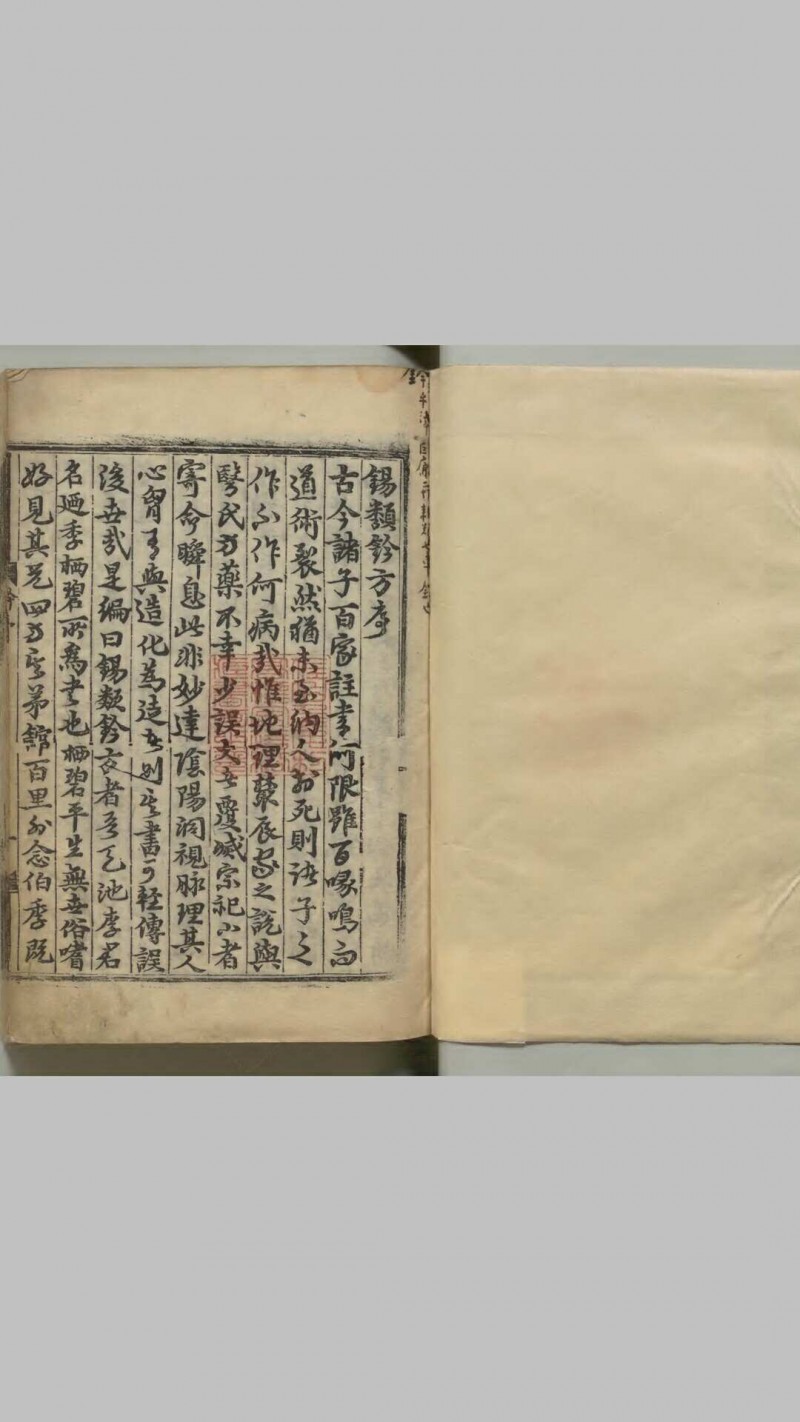 錫類鈐方序
古今諸子百家註書何限雖百喙鳴而
道術裂然猶未至納人於死則諸子之
作不作何病哉惟地理蓍辰家之說與
醫氏方藥不幸少誤大者覆滅宗祀小者
寄命瞬息此非妙達陰陽洞視脉理其人
心胷有與造化為徒者則其書可輕傳誤
後世哉是編曰錫類鈐方者吾天池李君
名迺季栖碧所為書也栖碧平生無世俗嗜
好見其兄四方其弟館百里外念伯季既